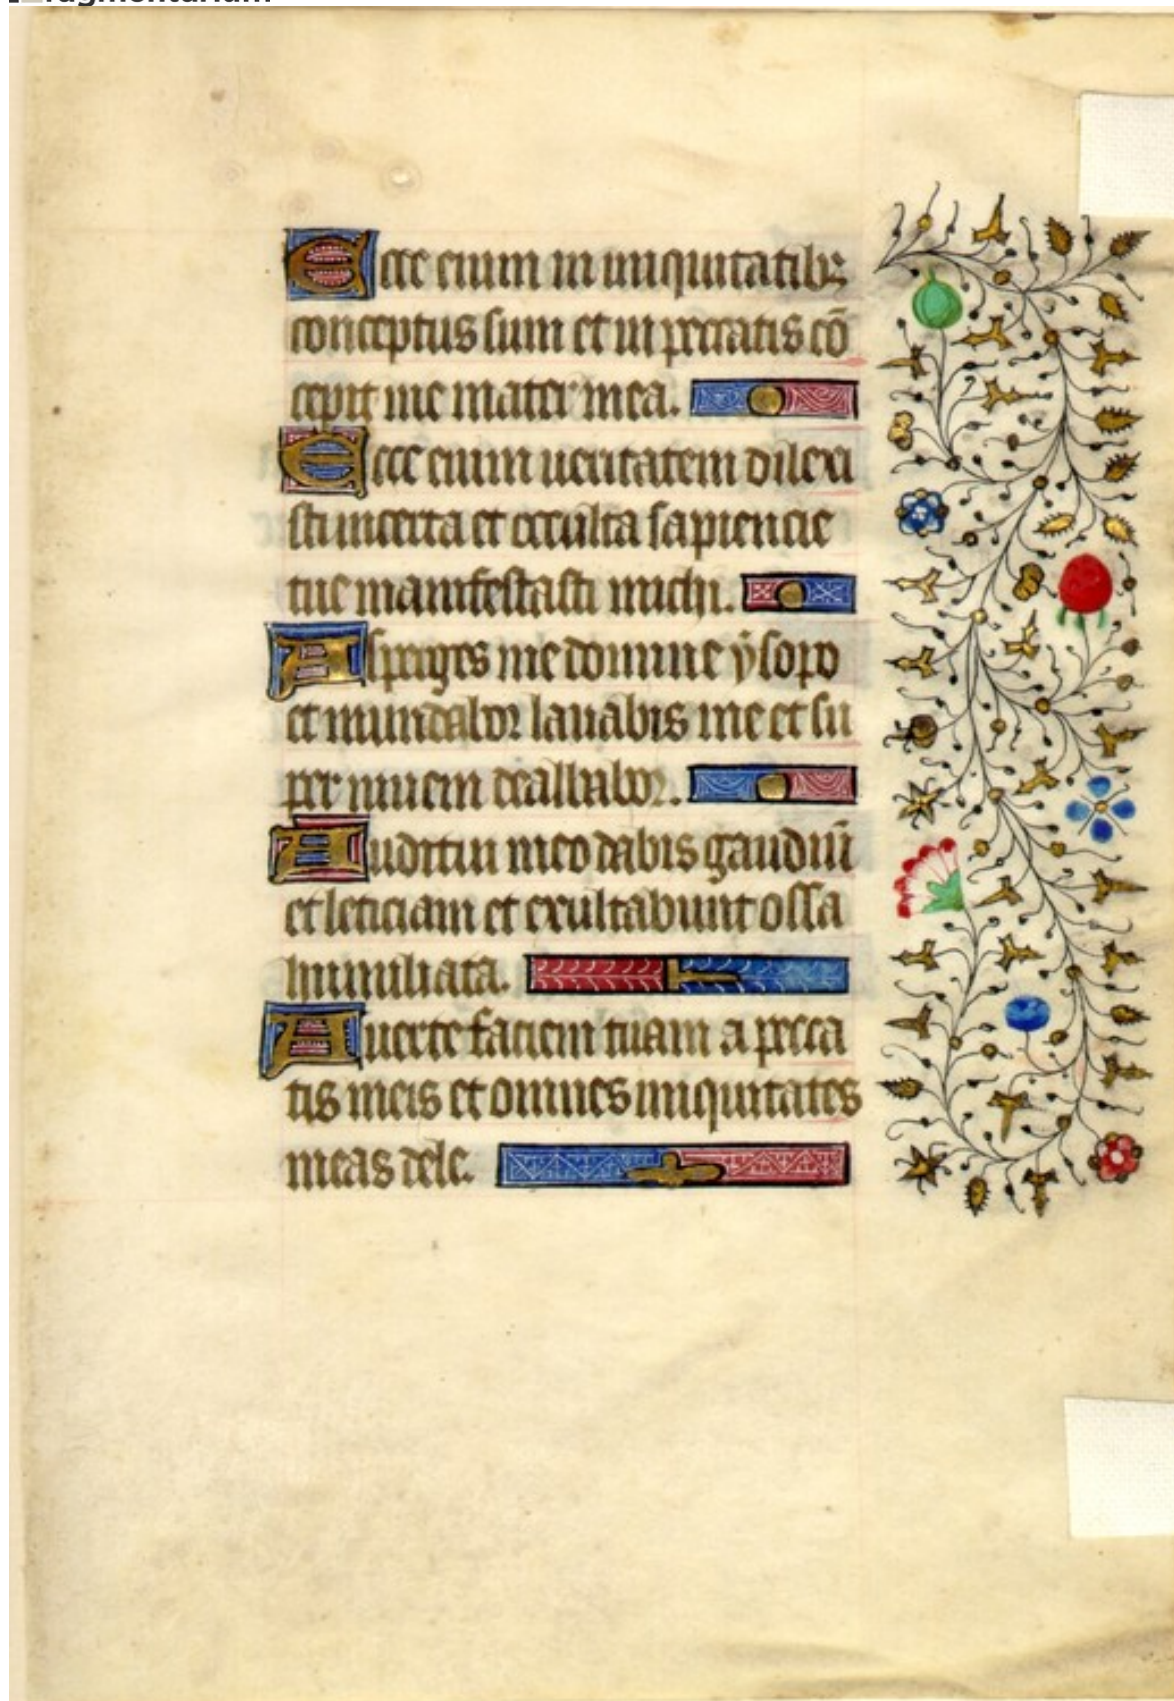 fragmentarium
Ecce enim in iniquitatibꝫ
conceptus sum et in peccatis cō
cepit me mater mea.
Ecce enim ueritatem dilexi
sti incerta et occulta sapiencie
tue manifestasti michi.
Asperges me domine ẏsopo
et mundabor lauabis me et su
per niuem dealbabor.
Auditui meo dabis gaudiū
et leticiam et exultabunt ossa
humiliata.
Auerte faciem tuam a pecca
tis meis et omnes iniquitates
meas dele.